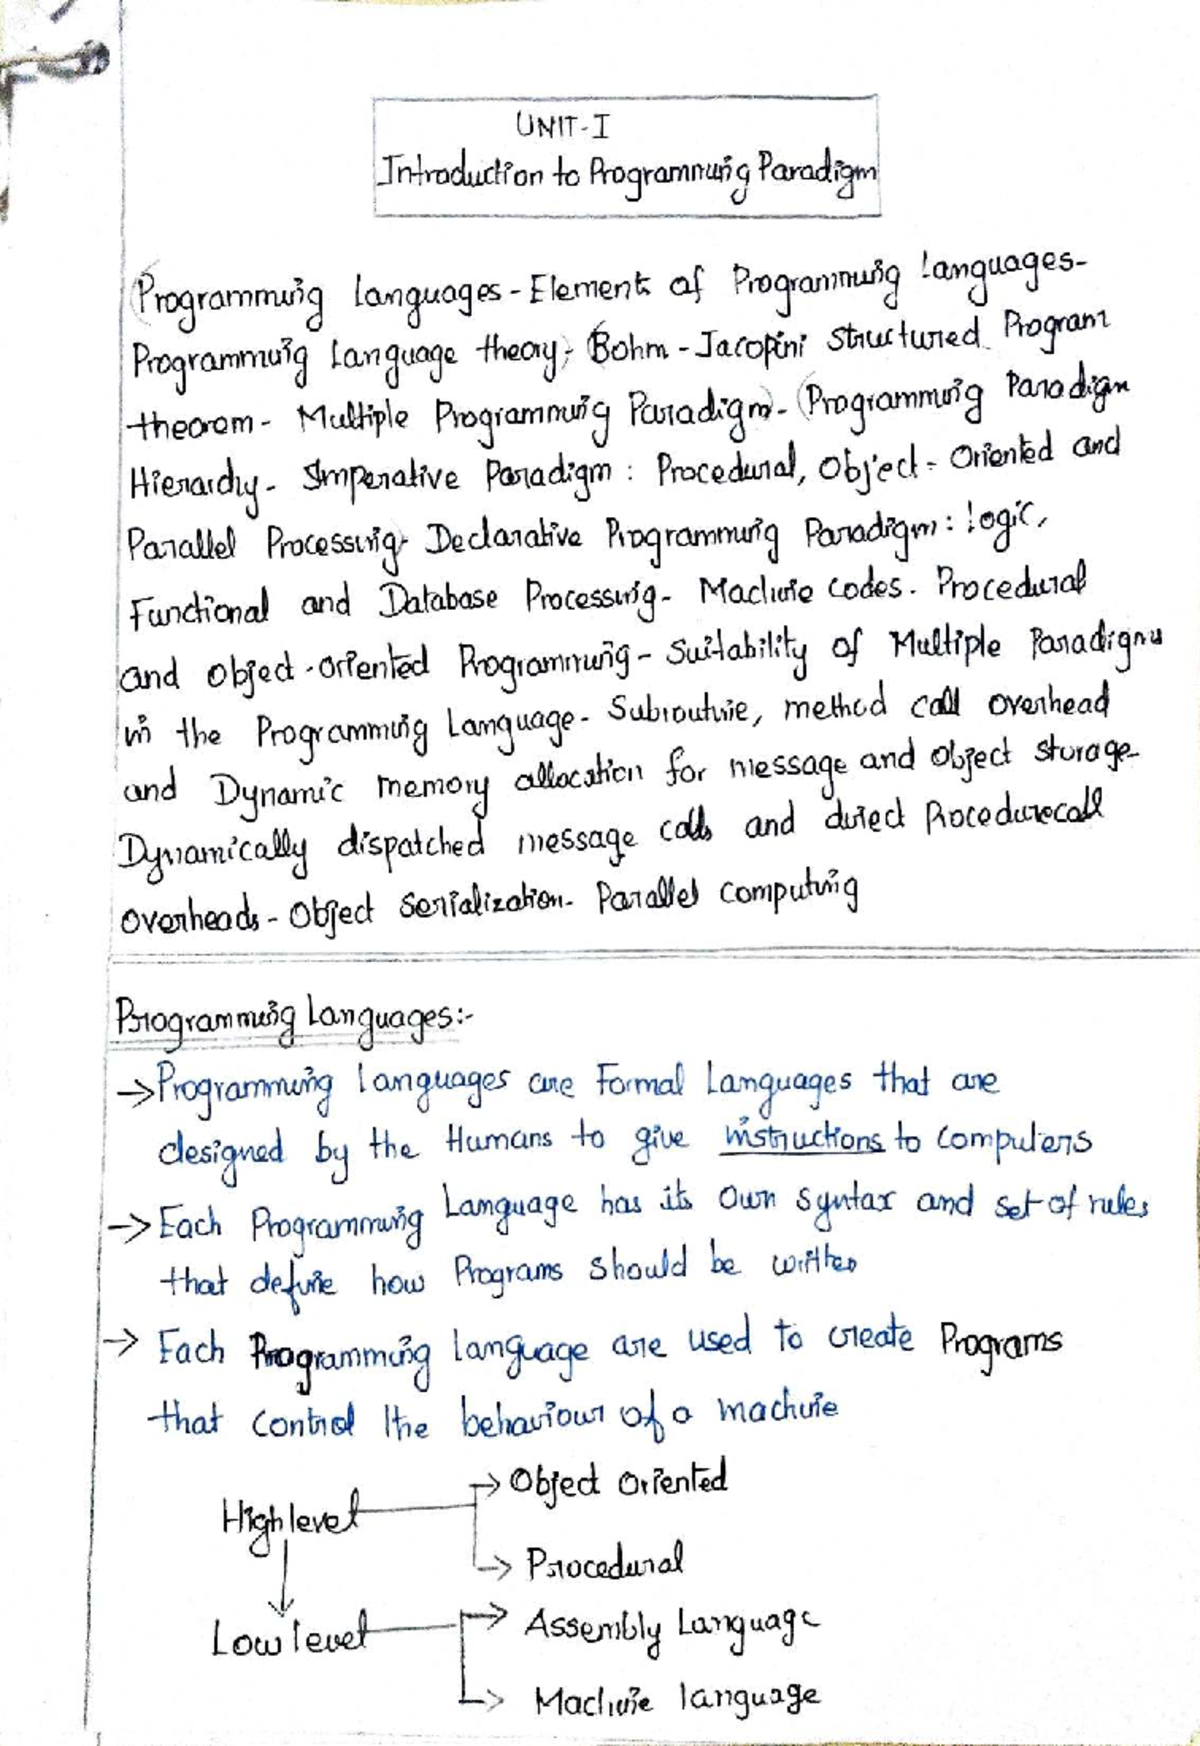 UNIT-I
Introduction to Programming Paradigm
Programming Languages - Element of Programming Languages-
Programming Language theory; Bohm - Jacopini structured Program
theorem - Multiple Programming Paradigm - (Programming Paradigm
Hierarchy - Imperative Paradigm : Procedural, Object - Oriented and
Parallel Processing - Declarative Programming Paradigm : Logic,
Functional and Database Processing - Machine codes. Procedural
and object-oriented Programming - Suitability of Multiple Paradigms
in the Programming Language - Subroutine, method call overhead
and Dynamic memory allocation for message and object storage-
Dynamically dispatched message calls and direct Procedurecall
overheads - Object serialization - Parallel computing
Programming Languages:-
→ Programming Languages are Formal Languages that are
designed by the Humans to give instructions to computers
→ Each Programming Language has its own syntax and set of rules
that define how Programs should be written
→ Each Programming language are used to create Programs
that control the behaviour of a machine
High level → Object Oriented
→ Procedural
Low level → Assembly Language
→ Machine language